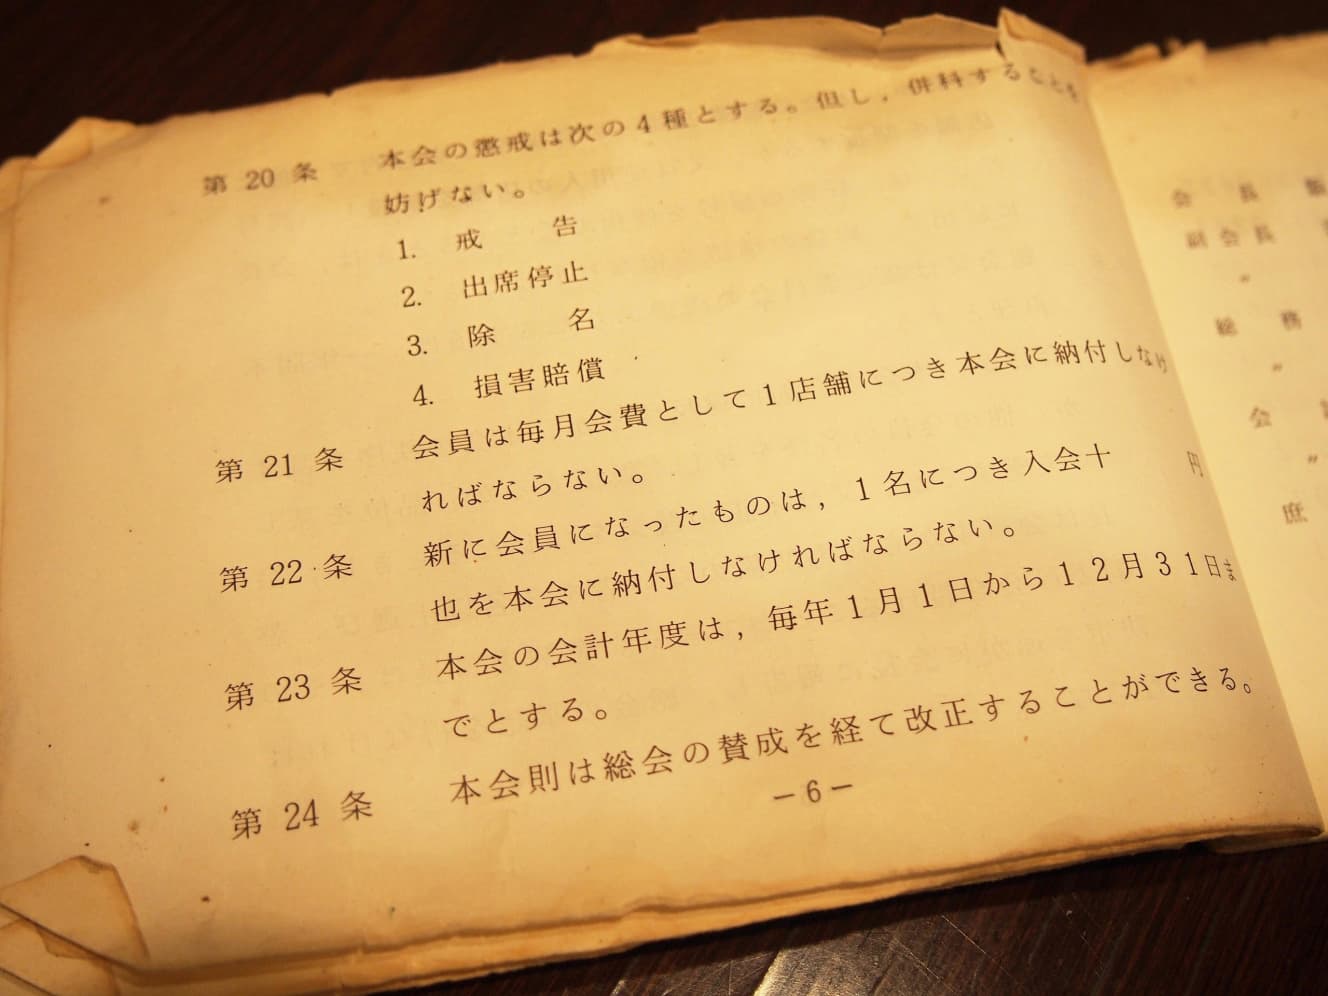 第 20 条　本会の懲戒は次の4種とする。但し，併科することを
妨げない。
1. 戒　　告
2. 出席停止
3. 除　　名
4. 損害賠償
第 21 条　会員は毎月会費として1店舗につき本会に納付しなけ
ればならない。
第 22 条　新に会員になったものは，1名につき入会十　　円
也を本会に納付しなければならない。
第 23 条　本会の会計年度は，毎年1月1日から12月31日ま
でとする。
第 24 条　本会則は総会の賛成を経て改正することができる。
－6－
会　長
副会長
〃
総　務
〃
会
〃
庶